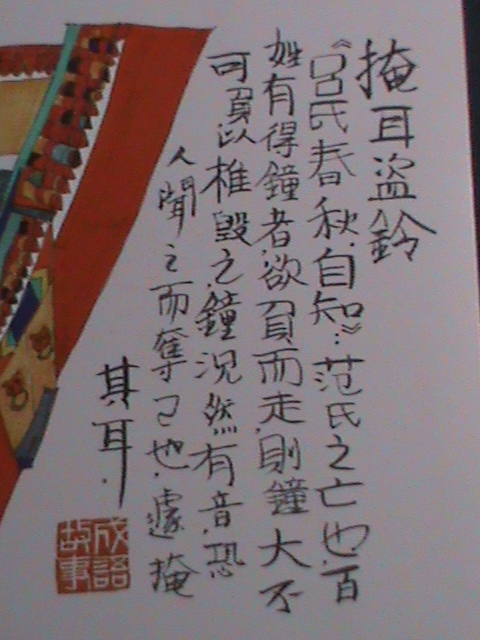 掩耳盜鈴
《呂氏春秋．自知》：范氏之亡也，百
姓有得鐘者，欲負而走，則鐘大不
可負，以椎毀之，鐘況然有音，恐
人聞之而奪己也，遽掩
其耳．
成語
故事